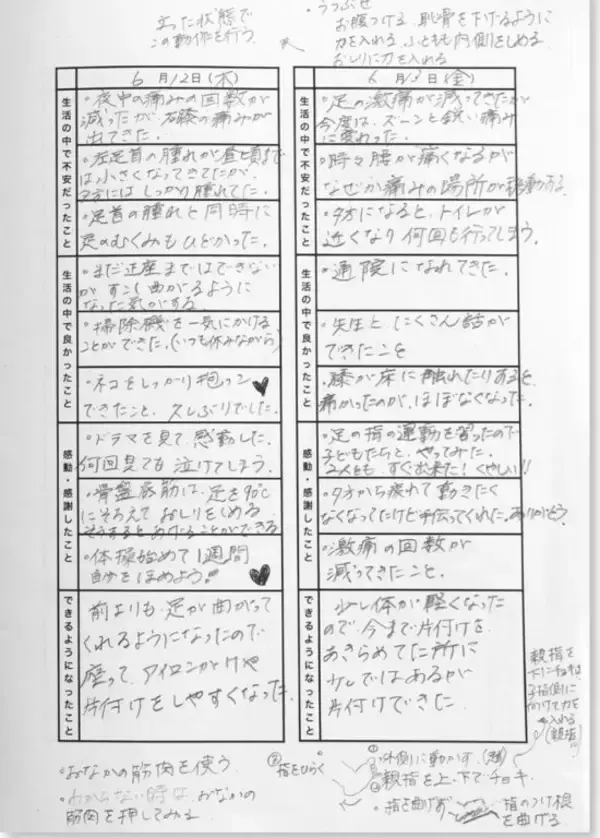 立った状態で
この動作を行う
・うつぶせ
お腹つける、恥骨を下げるように
力を入れる、ふともも内側をしめる
おしりに力を入れる
6月12日(木)
生活の中で不安だったこと
・夜中の痛みの回数が
減ったが、右膝の痛みが
出てきた。
・左足首の腫れが昼頃まで
は小さくなってきてたが、
夕方にはしっかり腫れてた。
・足首の腫れと同時に
足のむくみもひどかった。
生活の中で良かったこと
・まだ正座まではできない
がすこし曲がるように
なった気がする
・掃除機を一気にかける
ことができた。(いつも休みながら)
・ネコをしっかり抱っこ
できたこと、久しぶりでした。
感動・感謝したこと
・ドラマを見て感動した。
何回見ても泣けてしまう。
・骨盤底筋は、足を90℃
にそろえておしりをしめる
そうするとあげることができる
・体操始めて1週間
自分をほめよう!
できるようになったこと
前よりも、足が曲がって
くれるようになったので
座って、アイロンがけや
片付けをしやすくなった
6月13日(金)
生活の中で不安だったこと
・足の激痛が減ってきたが
今度は、ズーンと鋭い痛み
に変わった。
・時々腰が痛くなるが
なぜか痛みの場所が移動する
・夕方になると、トイレが
近くなり何回も行ってしまう。
生活の中で良かったこと
・通院になれてきた。
・先生とたくさん話が
できたこと
・膝が床に触れたりすると
痛かったのが、ほぼなくなった。
感動・感謝したこと
・足の指の運動を習ったので
子どもたちと、やってみた。
2人とも、すぐ出来た!くやしい!!
・夕方から疲れて動きたく
なくなってたけど手伝ってくれた。ありがとう
・激痛の回数が
減ってきたこと。
できるようになったこと
少し体が軽くなった
ので、今まで片付けを
あきらめてた所に
少しではあるが
片付けできた
親指を
下に
向けて力を
入れる
(親指)
・おなかの筋肉を使う
・わからない時は、おなかの
筋肉を押してみる
② 指をひらく
① 外側に動かす
③ 親指を上、下でチョキ
・指を曲げず
指のつけ根
を曲げる